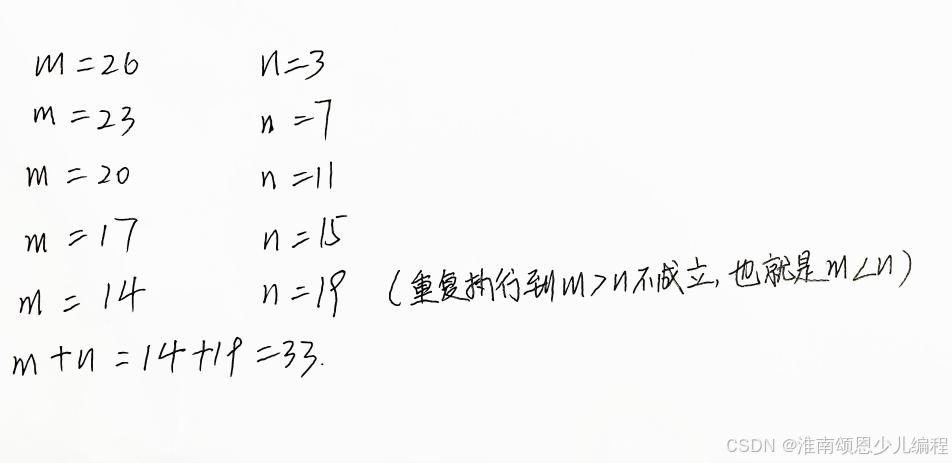 m=26 n=3
m=23 n=7
m=20 n=11
m=17 n=15
m=14 n=19 (重复执行到m>n不成立,也就是m<n)
m+n=14+19=33.
CSDN @淮南颂恩少儿编程